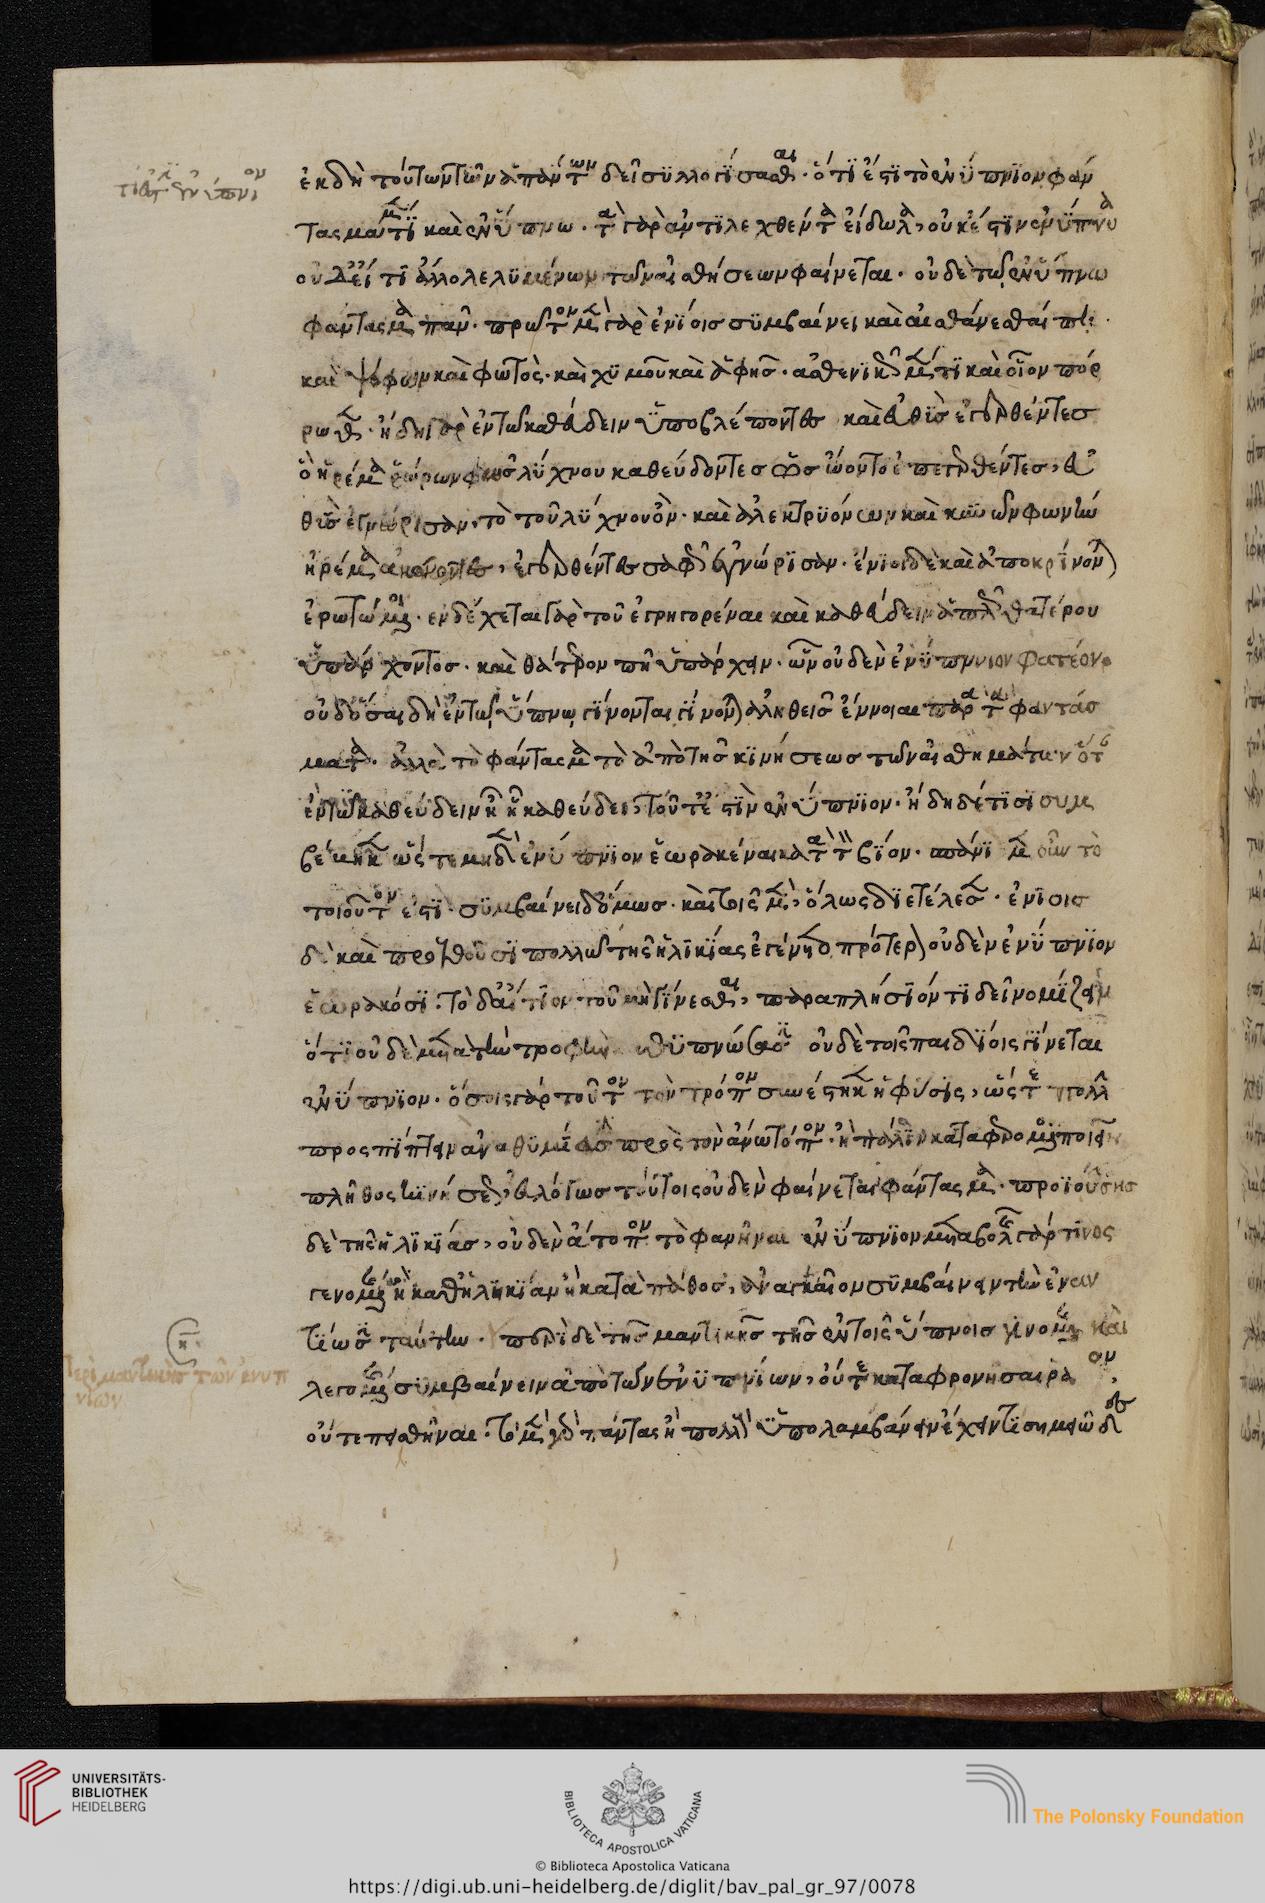 τί ἐστι τὸ ἐνύπνιον
ἐκ δὴ τούτων τῶν ἁπάντων δεῖ συλλογίσασθαι. ὅτι ἐστὶ τὸ ἐνύπνιον φάν
τασμα μέν τι καὶ ἐν ὕπνω. τὰ γὰρ ἀντιλεχθέντα εἴδωλα, οὐκ ἔστιν ἐνύπνια
οὐδ' εἴ τι ἄλλο λελυμένων τῶν αἰσθήσεων φαίνεται. οὐδὲ τὸ ἐν ὕπνω
φάντασμα πᾶν. πρῶτον μὲν γὰρ ἐνίοις συμβαίνει καὶ αἰσθάνεσθαί πῃ.
καὶ ψόφων καὶ φωτὸς. καὶ χυμοῦ καὶ ἁφῆς. ἀσθενικῶς μέν τι καὶ οἷον πόρ
ρωθεν. ἤδη γὰρ ἐν τῷ καθεύδειν ὑποβλέποντες καὶ εὐθὺς ἐγερθέντες
ὃ ἠρέμα ἑώρων φῶς λύχνου καθεύδοντες ὡς ᾤοντο ἐπεγερθέντες, εὐ
θὺς ἐγνώρισαν, τὸ τοῦ λύχνου ὄν. καὶ ἀλεκτρυόνων καὶ κυνῶν φωνὴν
ἠρέμα ἀκούοντες, ἐγερθέντες σαφῶς ἐγνώρισαν. ἔνιοι δὲ καὶ ἀποκρίνονται
ἐρωτώμενοι. ἐνδέχεται γὰρ τοῦ ἐγρηγορέναι καὶ καθεύδειν ἁπλῶς θατέρου
ὑπάρχοντος. καὶ θάτερον πῆ ὑπάρχειν. ὧν οὐδὲν ἐνύπνιον φατέον.
οὐδ' ὅσαι δὴ ἐν τῷ ὕπνῳ γίνονται γίνονται ἀληθεῖς ἔννοιαι παρὰ τὰ φαντάσ
ματα. ἀλλὰ τὸ φάντασμα τὸ ἀπὸ τῆς κινήσεως τῶν αἰσθημάτων ὅταν
ἐν τῷ καθεύδειν ᾖ ᾗ καθεύδει, τοῦτ' ἐστὶν ἐνύπνιον. ἤδη δέ τισι συμ
βέβηκεν ὥστε μηδὲν ἐνύπνιον ἑωρακέναι κατὰ τὸν βίον. σπάνι μὲν οὖν τὸ
τοιοῦτον ἐστί. συμβαίνει δ' ὅμως. καὶ τοῖς μὲν, ὅλως διετέλεσεν. ἐνίοις
δὲ καὶ προελθοῦσι πολλῷ τῆς ἡλικίας ἐγένετο πρότερον οὐδὲν ἐνύπνιον
ἑωρακόσι. τὸ δ' αἴτιον τοῦ μὴ γίνεσθαι, παραπλήσιόν τι δεῖ νομίζειν
ὅτι οὐδὲ μετὰ τὴν τροφὴν καθυπνώσασιν οὐδὲ τοῖς παιδίοις γίνεται
ἐνύπνιον. ὅσοις γὰρ τοῦτον τὸν τρόπον συνέστηκεν ἡ φύσις, ὥστε πολλὴν
προσπίπτειν ἀναθυμίασιν πρὸς τὸν ἄνω τόπον. ἣ πάλιν καταφερομένη ποιεῖ
πλῆθος κινήσεως, εὐλόγως τούτοις οὐδὲν φαίνεται φάντασμα. προϊούσης
δὲ τῆς ἡλικίας, οὐδὲν ἄτοπον τὸ φανῆναι ἐνύπνιον μεταβολῆς γάρ τινος
γενομένης ἢ καθ' ἡλικίαν ἢ κατὰ πάθος, ἀναγκαῖον συμβαίνειν τὴν ἐναν
τίωσιν ταύτην. περὶ δὲ τῆς μαντικῆς τῆς ἐν τοῖς ὕπνοις γινομένης καὶ
κ
Περὶ μαντικῆς τῶν ἐνυπ
νίων
λεγομένης συμβαίνειν ἀπὸ τῶν ἐνυπνίων, οὔτε καταφρονῆσαι ῥάδιον,
οὔτε πεισθῆναι. τὸ μὲν γὰρ πάντας ἢ πολλοὺς ὑπολαμβάνειν ἔχειν τι σημειῶδες
UNIVERSITÄTS-
BIBLIOTHEK
HEIDELBERG
BIBLIOTECA APOSTOLICA VATICANA
The Polonsky Foundation
© Biblioteca Apostolica Vaticana
https://digi.ub.uni-heidelberg.de/diglit/bav_pal_gr_97/0078